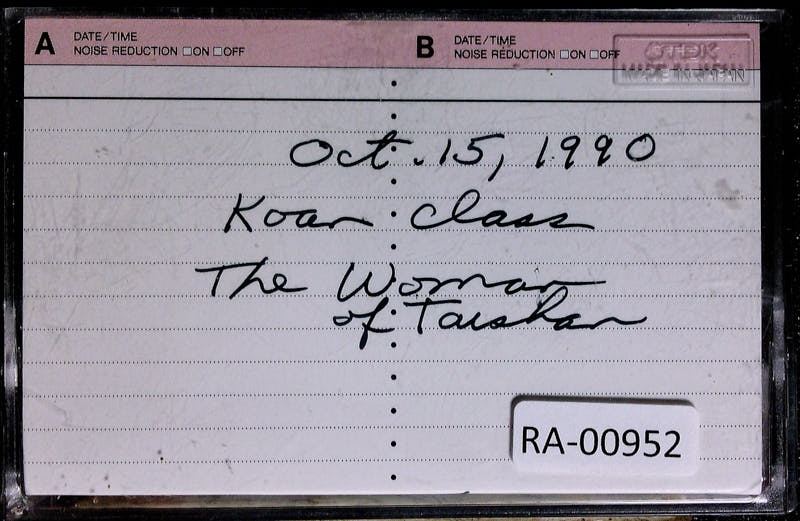 A DATE/TIME
NOISE REDUCTION □ON □OFF
B DATE/TIME
NOISE REDUCTION □ON □OFF
TDK
MADE IN JAPAN
Oct. 15, 1990
Koan class
The Woman
of Taishan
RA-00952